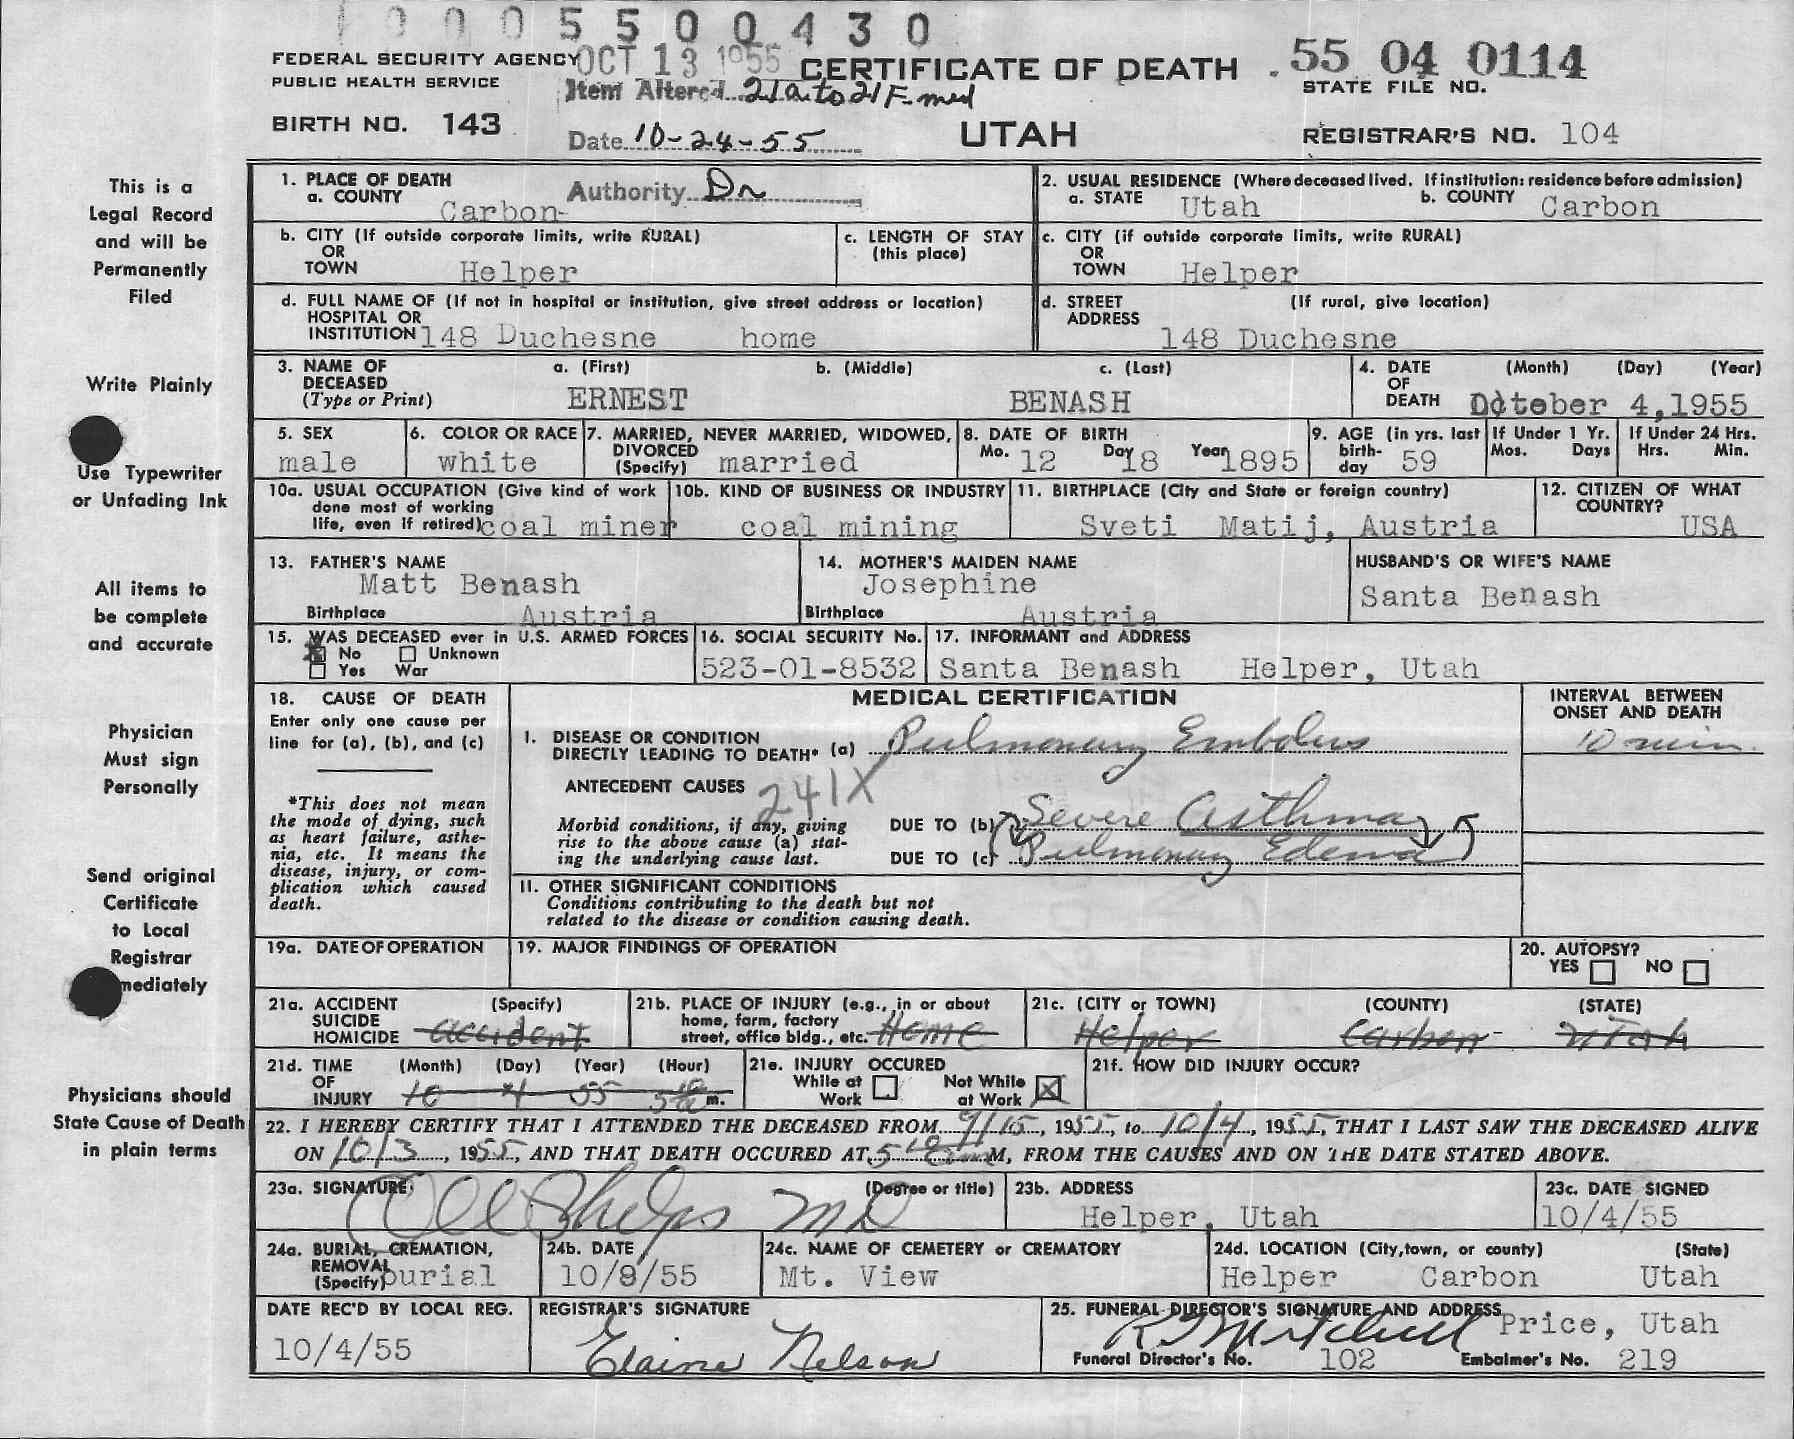 0005500430
FEDERAL SECURITY AGENCY OCT 13 1955 CERTIFICATE OF DEATH 55 04 0114
PUBLIC HEALTH SERVICE STATE FILE NO.
Item Altered 21a to 21F med
BIRTH NO. 143 Date 10-24-55 UTAH REGISTRAR'S NO. 104
This is a
Legal Record
and will be
Permanently
Filed
Write Plainly
Use Typewriter
or Unfading Ink
All items to
be complete
and accurate
Physician
Must sign
Personally
Send original
Certificate
to Local
Registrar
mediately
Physicians should
State Cause of Death
in plain terms
1. PLACE OF DEATH
a. COUNTY Carbon Authority Dr
2. USUAL RESIDENCE (Where deceased lived. If institution: residence before admission)
a. STATE Utah b. COUNTY Carbon
b. CITY (If outside corporate limits, write RURAL)
OR
TOWN Helper
c. LENGTH OF STAY
(this place)
c. CITY (if outside corporate limits, write RURAL)
OR
TOWN Helper
d. FULL NAME OF (If not in hospital or institution, give street address or location)
HOSPITAL OR
INSTITUTION 148 Duchesne home
d. STREET (If rural, give location)
ADDRESS
148 Duchesne
3. NAME OF a. (First) b. (Middle) c. (Last)
DECEASED
(Type or Print) ERNEST BENASH
4. DATE (Month) (Day) (Year)
OF
DEATH October 4,1955
5. SEX
male
6. COLOR OR RACE
white
7. MARRIED, NEVER MARRIED, WIDOWED,
DIVORCED
(Specify) married
8. DATE OF BIRTH
Mo. 12 Day 18 Year 1895
9. AGE (in yrs. last
birth-
day 59
If Under 1 Yr.
Mos. Days
If Under 24 Hrs.
Hrs. Min.
10a. USUAL OCCUPATION (Give kind of work
done most of working
life, even if retired) coal miner
10b. KIND OF BUSINESS OR INDUSTRY
coal mining
11. BIRTHPLACE (City and State or foreign country)
Sveti Matij, Austria
12. CITIZEN OF WHAT
COUNTRY?
USA
13. FATHER'S NAME
Matt Benash
Birthplace Austria
14. MOTHER'S MAIDEN NAME
Josephine
Birthplace Austria
HUSBAND'S OR WIFE'S NAME
Santa Benash
15. WAS DECEASED ever in U.S. ARMED FORCES
No Unknown
Yes War
16. SOCIAL SECURITY No.
523-01-8532
17. INFORMANT and ADDRESS
Santa Benash Helper, Utah
18. CAUSE OF DEATH
Enter only one cause per
line for (a), (b), and (c)
*This does not mean
the mode of dying, such
as heart failure, asthe-
nia, etc. It means the
disease, injury, or com-
plication which caused
death.
MEDICAL CERTIFICATION
INTERVAL BETWEEN
ONSET AND DEATH
I. DISEASE OR CONDITION
DIRECTLY LEADING TO DEATH* (a) Pulmonary Embolus 10 min.
ANTECEDENT CAUSES 241X
Morbid conditions, if any, giving
rise to the above cause (a) stat-
ing the underlying cause last.
DUE TO (b) Severe Asthma
DUE TO (c) Pulmonary Edema
II. OTHER SIGNIFICANT CONDITIONS
Conditions contributing to the death but not
related to the disease or condition causing death.
19a. DATE OF OPERATION
19. MAJOR FINDINGS OF OPERATION
20. AUTOPSY?
YES NO
21a. ACCIDENT (Specify)
SUICIDE
HOMICIDE accident
21b. PLACE OF INJURY (e.g., in or about
home, farm, factory
street, office bldg., etc. Home
21c. (CITY or TOWN) (COUNTY) (STATE)
Helper Carbon Utah
21d. TIME (Month) (Day) (Year) (Hour)
OF
INJURY 10 4 55 m.
21e. INJURY OCCURED
While at Not While
Work at Work
21f. HOW DID INJURY OCCUR?
22. I HEREBY CERTIFY THAT I ATTENDED THE DECEASED FROM 9/15, 1955, to 10/4, 1955, THAT I LAST SAW THE DECEASED ALIVE
ON 10/3, 1955, AND THAT DEATH OCCURED AT 5 M, FROM THE CAUSES AND ON THE DATE STATED ABOVE.
23a. SIGNATURE (Degree or title)
Phelps MD
23b. ADDRESS
Helper, Utah
23c. DATE SIGNED
10/4/55
24a. BURIAL, CREMATION,
REMOVAL
(Specify) burial
24b. DATE
10/8/55
24c. NAME OF CEMETERY or CREMATORY
Mt. View
24d. LOCATION (City, town, or county) (State)
Helper Carbon Utah
DATE REC'D BY LOCAL REG.
10/4/55
REGISTRAR'S SIGNATURE
Elaine Nelson
25. FUNERAL DIRECTOR'S SIGNATURE AND ADDRESS
Mitchell Price, Utah
Funeral Director's No. 102 Embalmer's No. 219